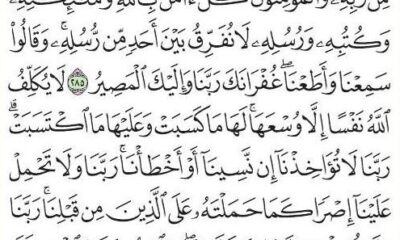 مِن رَّبِّهِۦ وَٱلْمُؤْمِنُونَ كُلٌّ ءَامَنَ بِٱللَّهِ وَمَلَٰٓئِكَتِهِۦ
وَكُتُبِهِۦ وَرُسُلِهِۦ لَا نُفَرِّقُ بَيْنَ أَحَدٍ مِّن رُّسُلِهِۦ ۚ وَقَالُوا۟
سَمِعْنَا وَأَطَعْنَا ۖ غُفْرَانَكَ رَبَّنَا وَإِلَيْكَ ٱلْمَصِيرُ ٢٨٥ لَا يُكَلِّفُ
ٱللَّهُ نَفْسًا إِلَّا وُسْعَهَا ۚ لَهَا مَا كَسَبَتْ وَعَلَيْهَا مَا ٱكْتَسَبَتْ ۗ
رَبَّنَا لَا تُؤَاخِذْنَآ إِن نَّسِينَآ أَوْ أَخْطَأْنَا ۚ رَبَّنَا وَلَا تَحْمِلْ
عَلَيْنَآ إِصْرًا كَمَا حَمَلْتَهُۥ عَلَى ٱلَّذِينَ مِن قَبْلِنَا ۚ رَبَّنَا